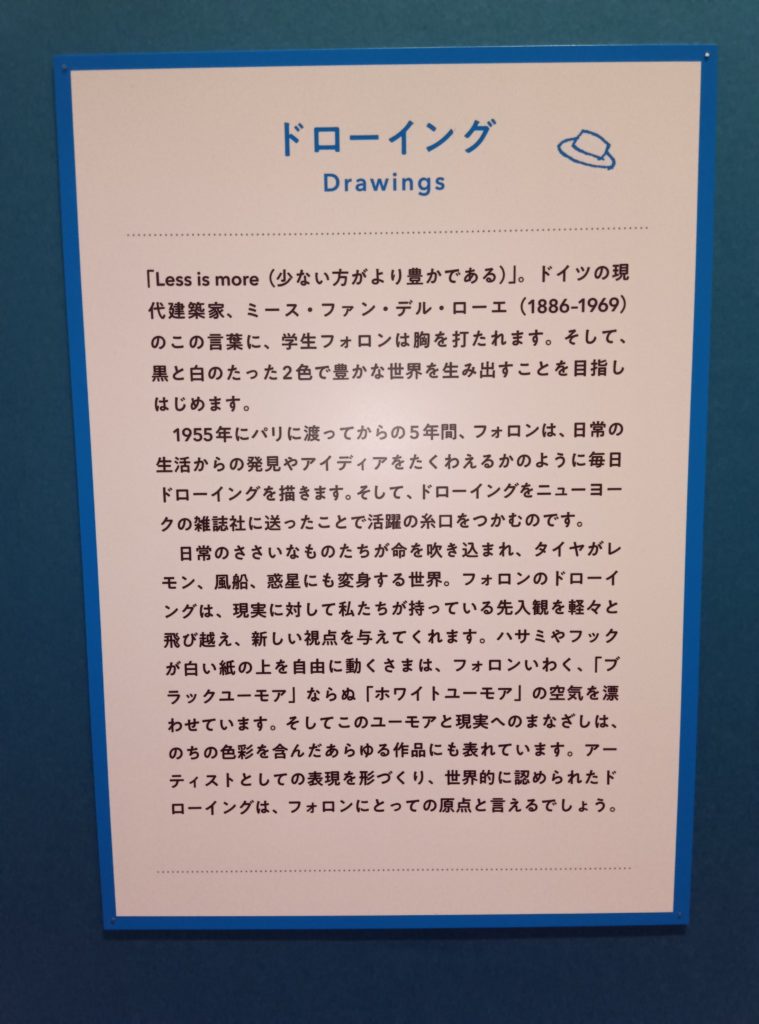 ドローイング
Drawings
「Less is more（少ない方がより豊かである）」。ドイツの現
代建築家、ミース・ファン・デル・ローエ（1886-1969）
のこの言葉に、学生フォロンは胸を打たれます。そして、
黒と白のたった2色で豊かな世界を生み出すことを目指し
はじめます。
　1955年にパリに渡ってからの5年間、フォロンは、日常の
生活からの発見やアイディアをたくわえるかのように毎日
ドローイングを描きます。そして、ドローイングをニューヨー
クの雑誌社に送ったことで活躍の糸口をつかむのです。
　日常のささいなものたちが命を吹き込まれ、タイヤがレ
モン、風船、惑星にも変身する世界。フォロンのドローイ
ングは、現実に対して私たちが持っている先入観を軽々と
飛び越え、新しい視点を与えてくれます。ハサミやフック
が白い紙の上を自由に動くさまは、フォロンいわく、「ブ
ラックユーモア」ならぬ「ホワイトユーモア」の空気を漂
わせています。そしてこのユーモアと現実へのまなざしは、
のちの色彩を含んだあらゆる作品にも表れています。アー
ティストとしての表現を形づくり、世界的に認められたド
ローイングは、フォロンにとっての原点と言えるでしょう。